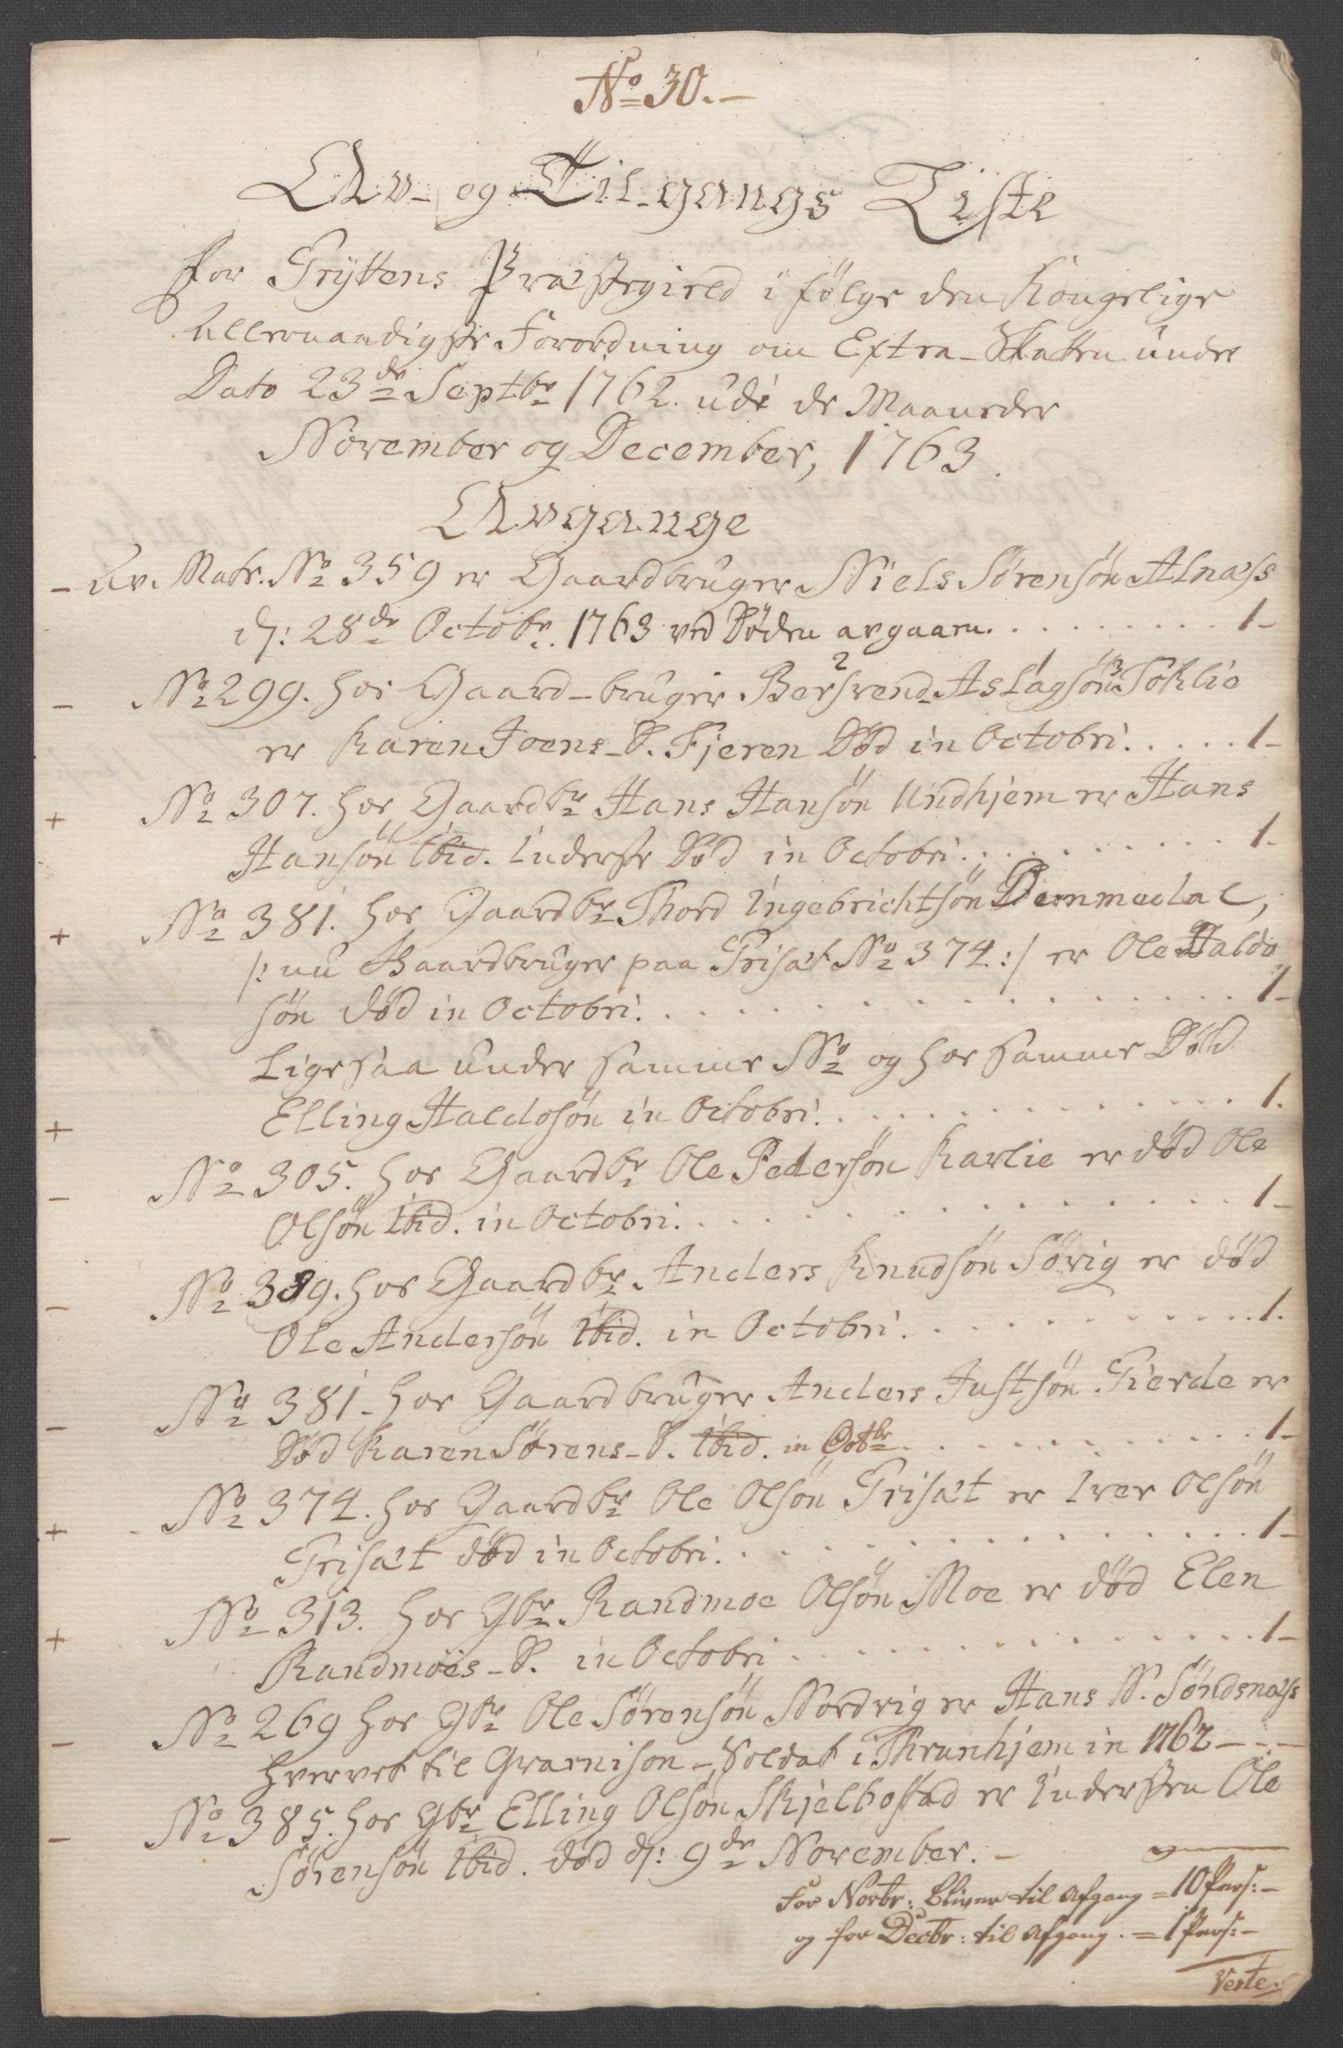 No 30.-
Av- og Til-gangs Liste
for Gryttens Præstegield i følge den Kongelige
Allernaadigste Forordning om Extra-Skatten under
Dato 23de Septbr 1762. udi de Maaneder
November og December, 1763.
Avgange
- Av. Matr. No 359 er Gaardbruger Niels Sørensøn Alnæss
d: 28de Octobr. 1763 ved Døden avgaaen. 1-
- No 299. hos Gaard-bruger Bersvend Aslagsøn Soklie
er Karen Joens-D. Fjeren Død in Octobri. 1-
+ No 307. hos Gaardbr Hans Hansøn Undhjem er Hans
Hansøn Ibid. Inderste Død in Octobri. 1.
+ No 381. hos Gaardbr Thord Ingebrichtsøn Demmedal,
/: nu Gaardbruger paa Grisæt No 374 :/ er Ole Haldo
søn død in Octobri. 1-
Ligesaa under samme No og hos samme Død
+ Elling Haldosøn in Octobri. 1.
- No 305. hos Gaardbr Ole Pedersøn Karlie er død Ole
Olsøn Ibid. in Octobri. 1-
- No 339. hos Gaardbr. Anders Knudsøn Sørig er død
Ole Andersøn Ibid. in Octobri. 1.
- No 381. hos Gaardbruger Anders Justsøn Fierde er
Død Karen Sørens-D. Ibid. in Octbr 1-
+ No 374. hos Gaardbr Ole Olsøn Grisæt er Iver Olsøn
Grisæt død in Octobri. 1-
+ No 313. hos Gbr. Randmoe Olsøn Moe er død Elen
Randmoes-D. in Octobri 1-
- No 269 hos Gbr Ole Sørensøn Nordvig er Hans N. Søndsnæss
hvervet til Gvarnison-Soldat i Thrunhjem in 1762 - - -
- No 385. hos Gbr Elling Olsøn Skjelbostad er Indersten Ole
Sørensøn Ibid. død d: 9de November. -
For Novbr: bliver til Afgang = 10 Pers: -
og for Decbr: til Afgang. = 1 Pers: -
Verte.